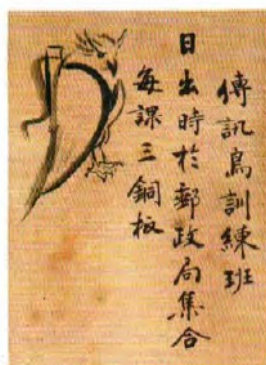 傳訊鳥訓練班
日出時於郵政局集合
每課三銅板